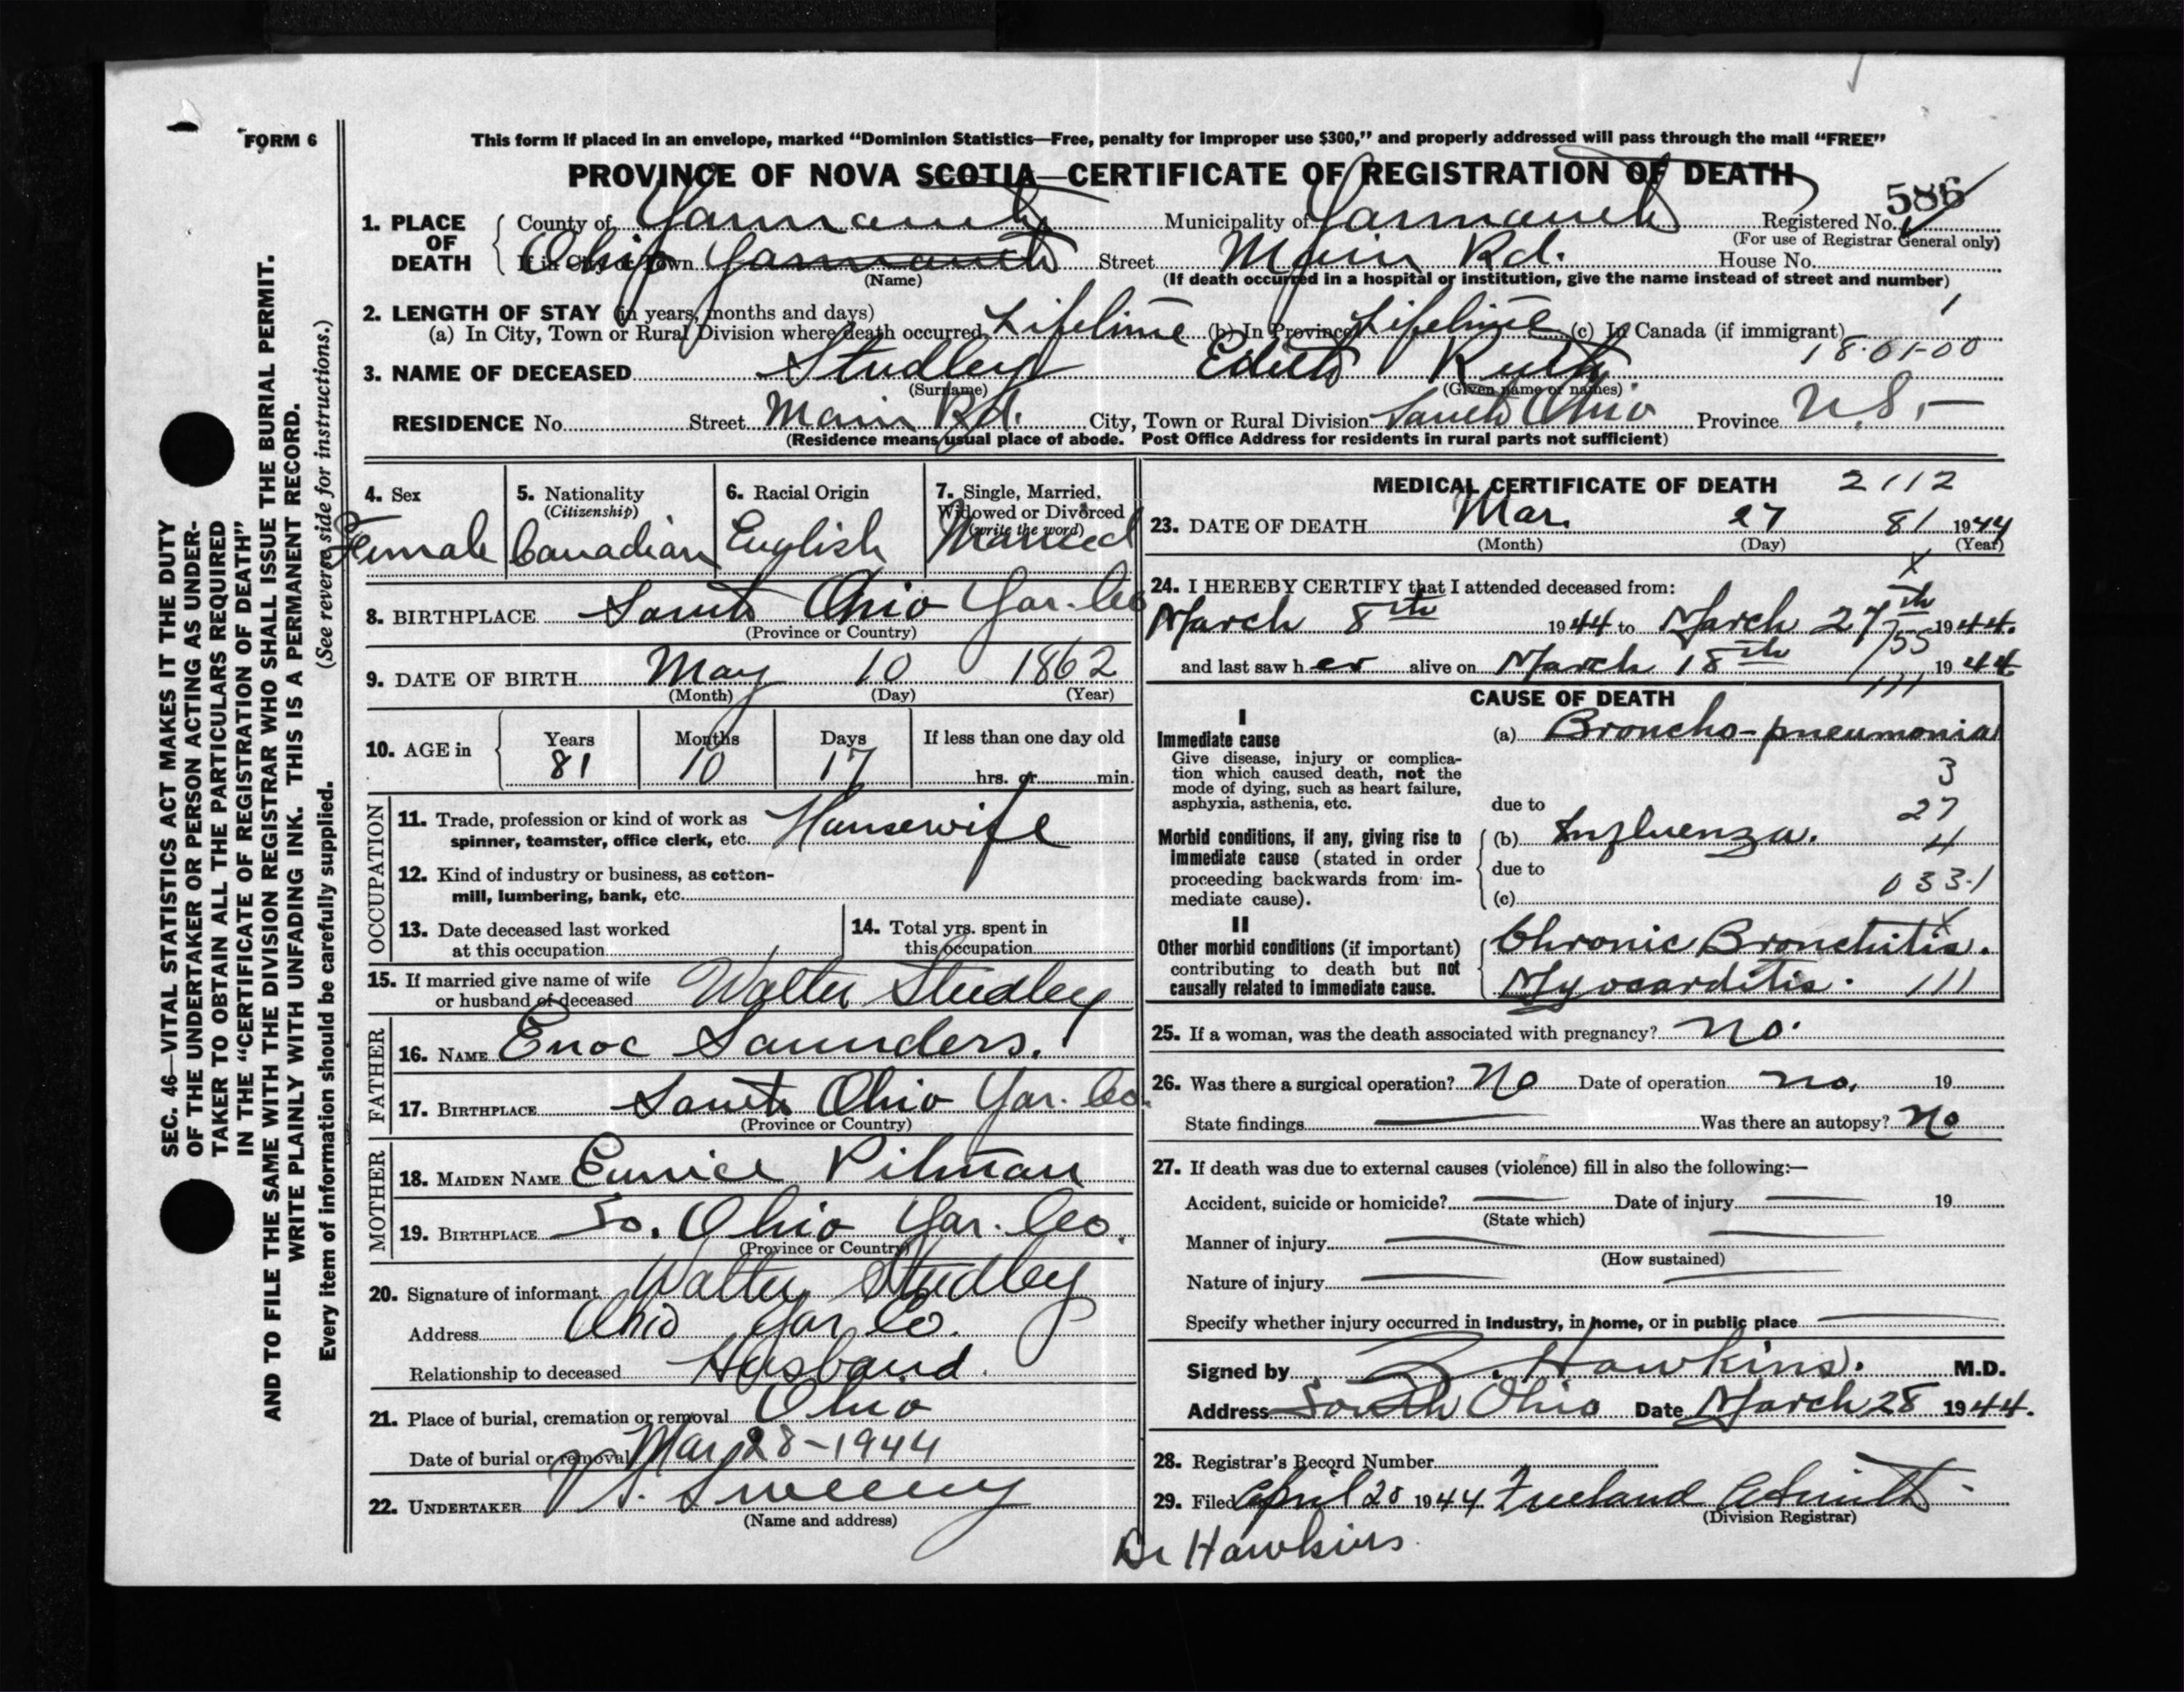 FORM 6
This form if placed in an envelope, marked “Dominion Statistics—Free, penalty for improper use $300,” and properly addressed will pass through the mail “FREE”
PROVINCE OF NOVA SCOTIA—CERTIFICATE OF REGISTRATION OF DEATH
586
1. PLACE OF DEATH County of Yarmouth Municipality of Yarmouth Registered No.
(For use of Registrar General only)
If in City or Town Ohio Yarmouth Street Main Rd. House No.
(Name) (If death occurred in a hospital or institution, give the name instead of street and number)
2. LENGTH OF STAY (in years, months and days) 1
(a) In City, Town or Rural Division where death occurred Lifetime (b) In Province Lifetime (c) In Canada (if immigrant)
18-01-00
3. NAME OF DECEASED Studley Edith Ruth
(Surname) (Given name or names)
RESIDENCE No. Street Main Rd. City, Town or Rural Division South Ohio Province N.S.
(Residence means usual place of abode. Post Office Address for residents in rural parts not sufficient)
4. Sex
Female
5. Nationality
(Citizenship)
Canadian
6. Racial Origin
English
7. Single, Married, Widowed or Divorced
(write the word)
Married
8. BIRTHPLACE South Ohio Yar. Co
(Province or Country)
9. DATE OF BIRTH May 10 1862
(Month) (Day) (Year)
10. AGE in Years Months Days If less than one day old
81 10 17 hrs. or min.
OCCUPATION
11. Trade, profession or kind of work as
spinner, teamster, office clerk, etc. Housewife
12. Kind of industry or business, as cotton-
mill, lumbering, bank, etc.
13. Date deceased last worked
at this occupation
14. Total yrs. spent in
this occupation
15. If married give name of wife
or husband of deceased Walter Studley
FATHER
16. NAME Enoc Saunders.
17. BIRTHPLACE South Ohio Yar. Co.
(Province or Country)
MOTHER
18. MAIDEN NAME Eunice Pitman
19. BIRTHPLACE So. Ohio Yar. Co.
(Province or Country)
20. Signature of informant Walter Studley
Address Ohio Yar Co.
Relationship to deceased Husband.
21. Place of burial, cremation or removal Ohio
Date of burial or removal Mar 28-1944
22. UNDERTAKER V. S. Sweeny
(Name and address)
MEDICAL CERTIFICATE OF DEATH 2112
23. DATE OF DEATH Mar. 27 81 1944
(Month) (Day) (Year)
x
24. I HEREBY CERTIFY that I attended deceased from:
March 8th 1944 to March 27th 1944.
155
and last saw her alive on March 18th 1944
111
CAUSE OF DEATH
I
Immediate cause
Give disease, injury or complica-
tion which caused death, not the
mode of dying, such as heart failure,
asphyxia, asthenia, etc.
(a) Broncho-pneumonia
3
due to
27
Morbid conditions, if any, giving rise to
immediate cause (stated in order
proceeding backwards from im-
mediate cause).
(b) Influenza. 4
due to
(c) 033.1
x
II
Other morbid conditions (if important)
contributing to death but not
causally related to immediate cause.
Chronic Bronchitis.
Myocarditis. 111
25. If a woman, was the death associated with pregnancy? no.
26. Was there a surgical operation? No Date of operation no. 19
State findings Was there an autopsy? No
27. If death was due to external causes (violence) fill in also the following:—
Accident, suicide or homicide? Date of injury 19
(State which)
Manner of injury
(How sustained)
Nature of injury
Specify whether injury occurred in industry, in home, or in public place
Signed by Z. Hawkins. M.D.
Address South Ohio Date March 28 1944.
28. Registrar's Record Number
29. Filed April 20 1944 Freeland A Smith
(Division Registrar)
Dr Hawkins
SEC. 46—VITAL STATISTICS ACT MAKES IT THE DUTY
OF THE UNDERTAKER OR PERSON ACTING AS UNDER-
TAKER TO OBTAIN ALL THE PARTICULARS REQUIRED
IN THE “CERTIFICATE OF REGISTRATION OF DEATH”
AND TO FILE THE SAME WITH THE DIVISION REGISTRAR WHO SHALL ISSUE THE BURIAL PERMIT.
WRITE PLAINLY WITH UNFADING INK. THIS IS A PERMANENT RECORD.
Every item of information should be carefully supplied. (See reverse side for instructions.)